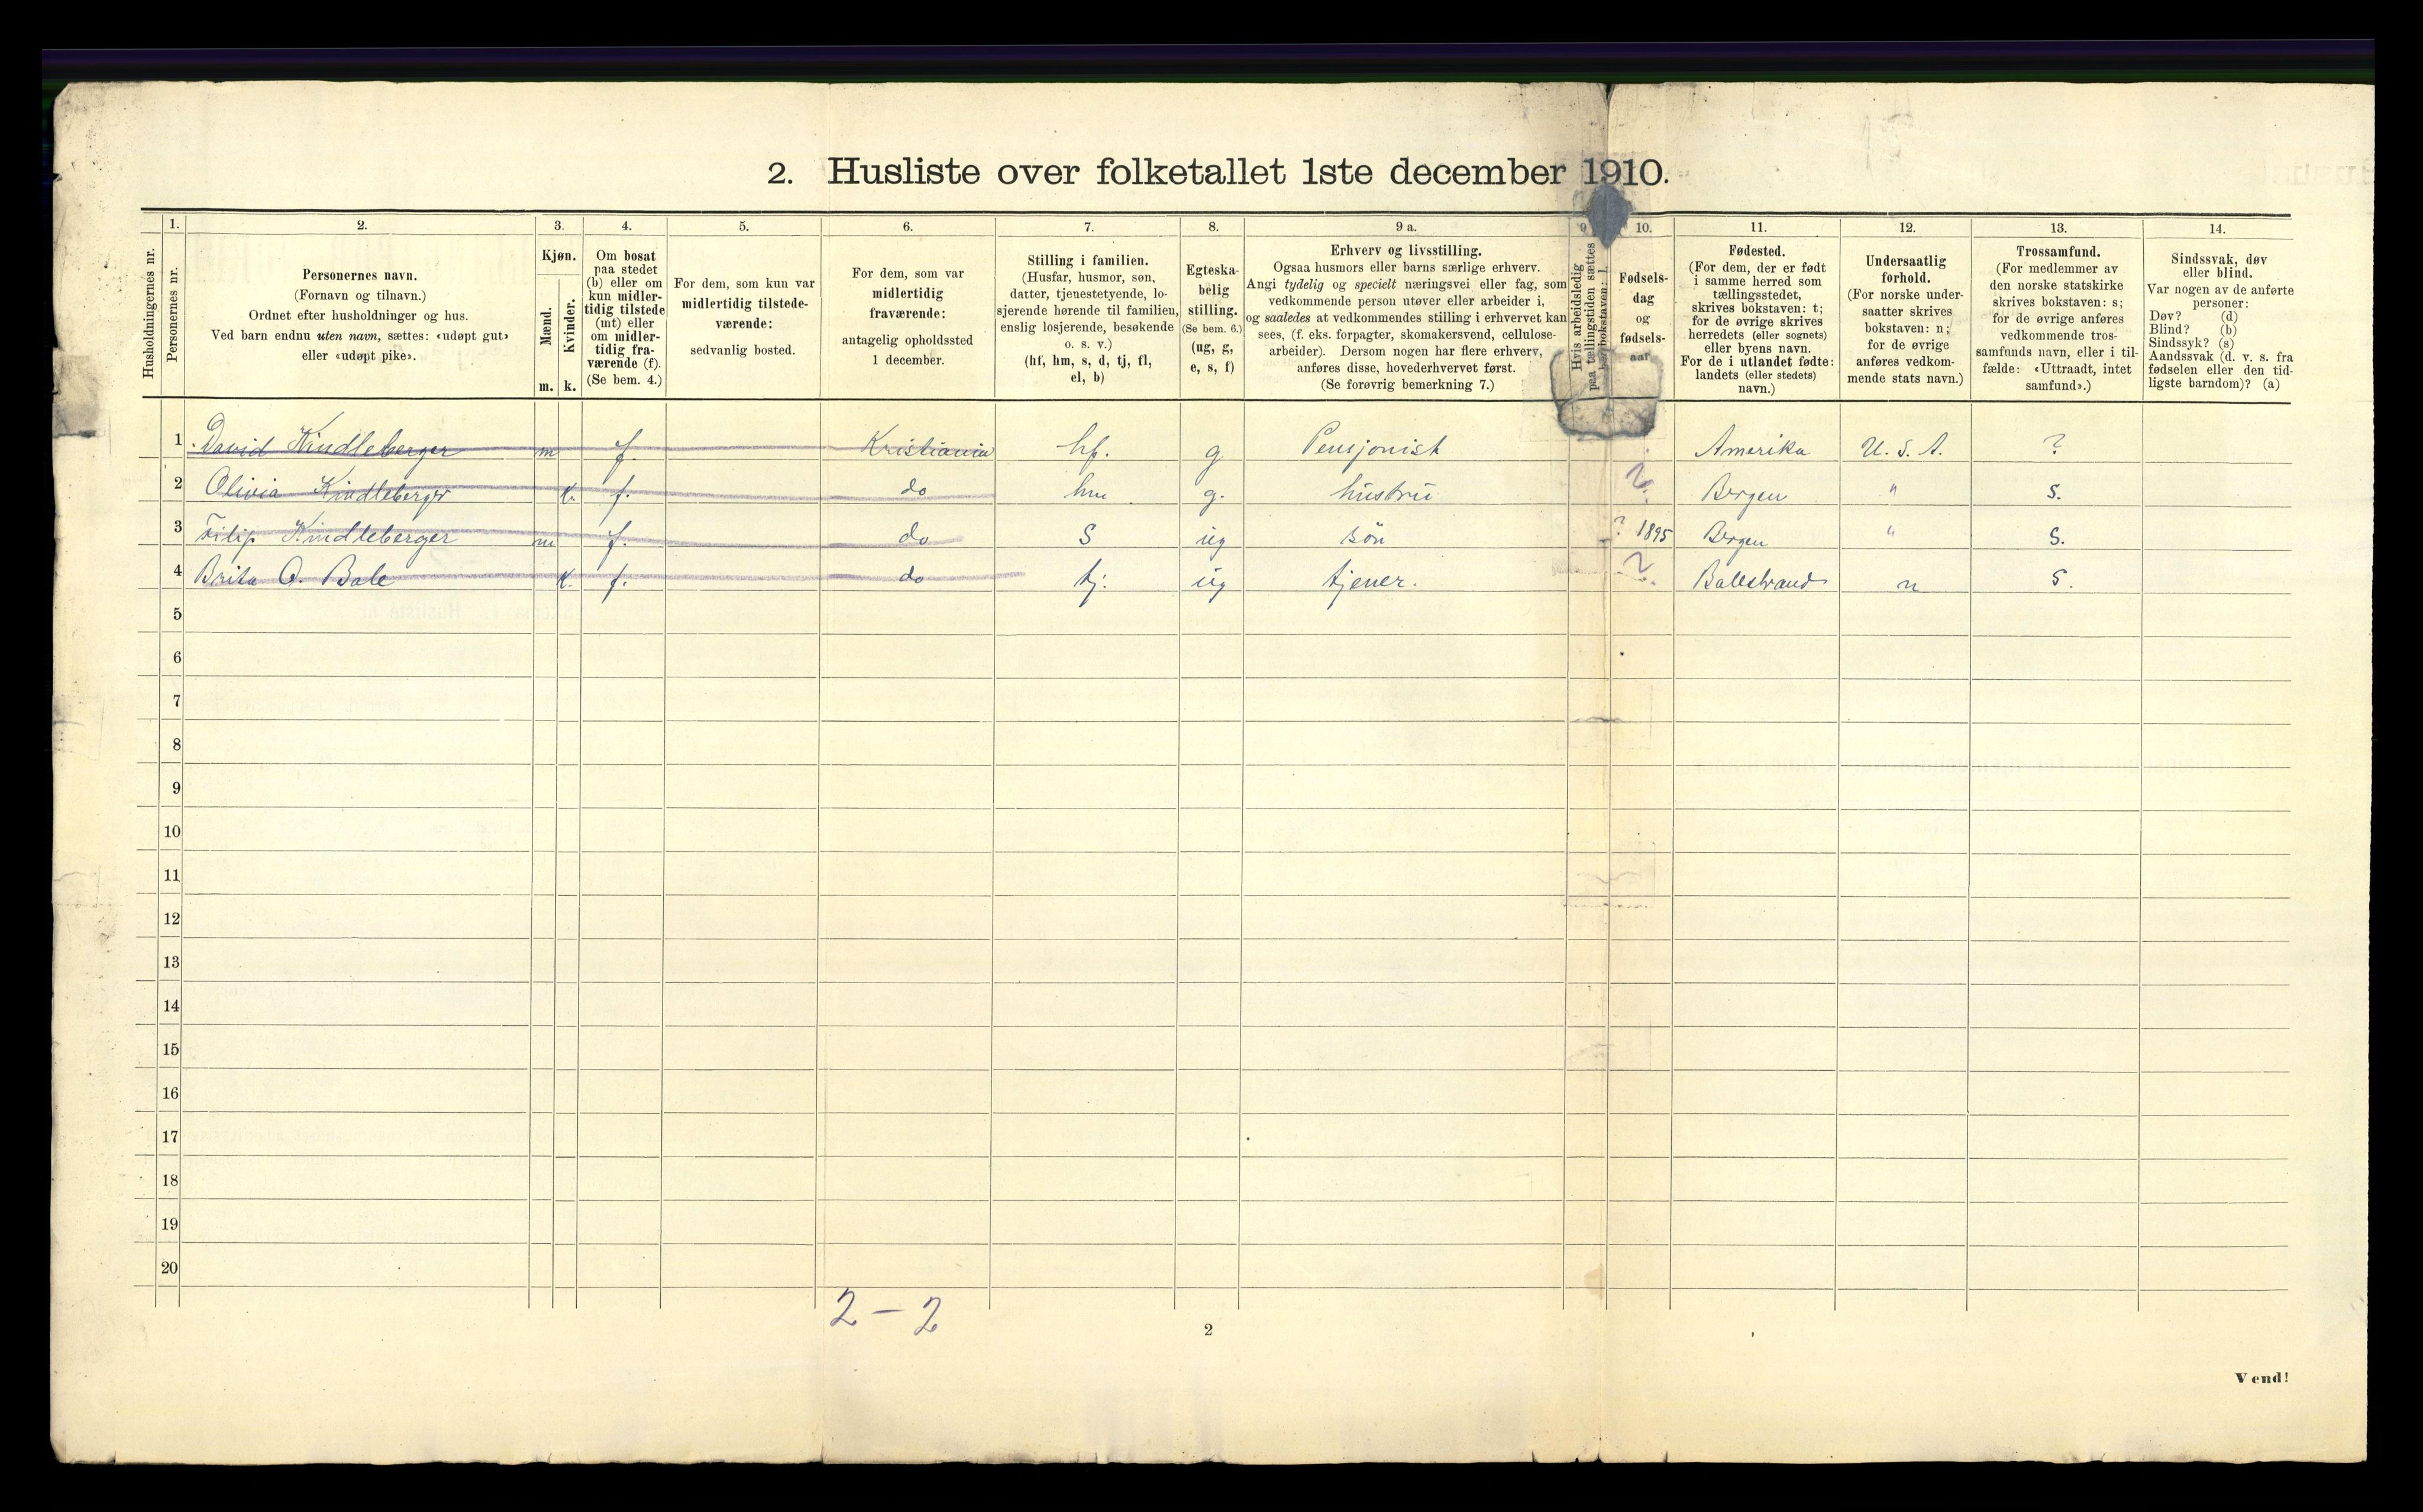 2. Husliste over folketallet 1ste december 1910.
Husholdningernes nr.
1.
Personernes nr.
2.
Personernes navn.
(Fornavn og tilnavn.)
Ordnet efter husholdninger og hus.
Ved barn endnu uten navn, sættes: «udøpt gut»
eller «udøpt pike».
3.
Kjøn.
Mænd.
Kvinder.
m. k.
4.
Om bosat
paa stedet
(b) eller om
kun midler-
tidig tilstede
(mt) eller
om midler-
tidig fra-
værende (f).
(Se bem. 4.)
5.
For dem, som kun var
midlertidig tilstede-
værende:
sedvanlig bosted.
6.
For dem, som var
midlertidig
fraværende:
antagelig opholdssted
1 december.
7.
Stilling i familien.
(Husfar, husmor, søn,
datter, tjenestetyende, lo-
sjerende hørende til familien,
enslig losjerende, besøkende
o. s. v.)
(hf, hm, s, d, tj, fl,
el, b)
8.
Egteska-
belig
stilling.
(Se bem. 6.)
(ug, g,
e, s, f)
9 a.
Erhverv og livsstilling.
Ogsaa husmors eller barns særlige erhverv.
Angi tydelig og specielt næringsvei eller fag, som
vedkommende person utøver eller arbeider i,
og saaledes at vedkommendes stilling i erhvervet kan
sees, (f. eks. forpagter, skomakersvend, cellulose-
arbeider). Dersom nogen har flere erhverv,
anføres disse, hovederhvervet først.
(Se forøvrig bemerkning 7.)
9
Hvis arbeidsledig
paa tællingstiden sættes
her bokstaven: l.
10.
Fødsels-
dag
og
fødsels-
aar
11.
Fødested.
(For dem, der er født
i samme herred som
tællingsstedet,
skrives bokstaven: t;
for de øvrige skrives
herredets (eller sognets)
eller byens navn.
For de i utlandet fødte:
landets (eller stedets)
navn.)
12.
Undersaatlig
forhold.
(For norske under-
saatter skrives
bokstaven: n;
for de øvrige
anføres vedkom-
mende stats navn.)
13.
Trossamfund.
(For medlemmer av
den norske statskirke
skrives bokstaven: s;
for de øvrige anføres
vedkommende tros-
samfunds navn, eller i til-
fælde: «Uttraadt, intet
samfund».)
14.
Sindssvak, døv
eller blind.
Var nogen av de anførte
personer:
Døv? (d)
Blind? (b)
Sindssyk? (s)
Aandssvak (d. v. s. fra
fødselen eller den tid-
ligste barndom)? (a)
1 David Kindleberger m f. Kristiania hf. g Pensjonist Amerika U. S. A. ?
2 Olivia Kindleberger k. f. do hm g. hustru ? Bergen " S.
3 Filip Kindleberger m f. do S ug sön ? 1895 Bergen " S.
4 Brita O. Bale k. f. do tj. ug tjener. ? Balestrand n S.
5
6
7
8
9
10
11
12
13
14
15
16
17
18
19
20
2 – 2
2
Vend!